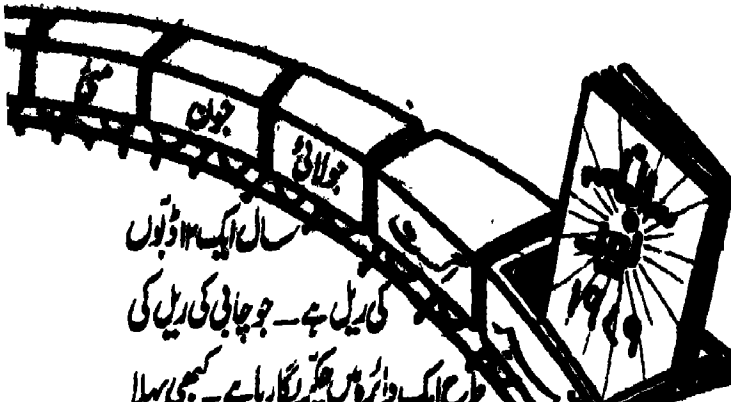 مئی
جون
جولائی
سال ایک ۱۲ ڈبّوں
کی ریل ہے ۔ جو چابی کی ریل کی
طرح ایک دائرہ میں چکّر لگا رہا ہے ۔ کبھی پہلا